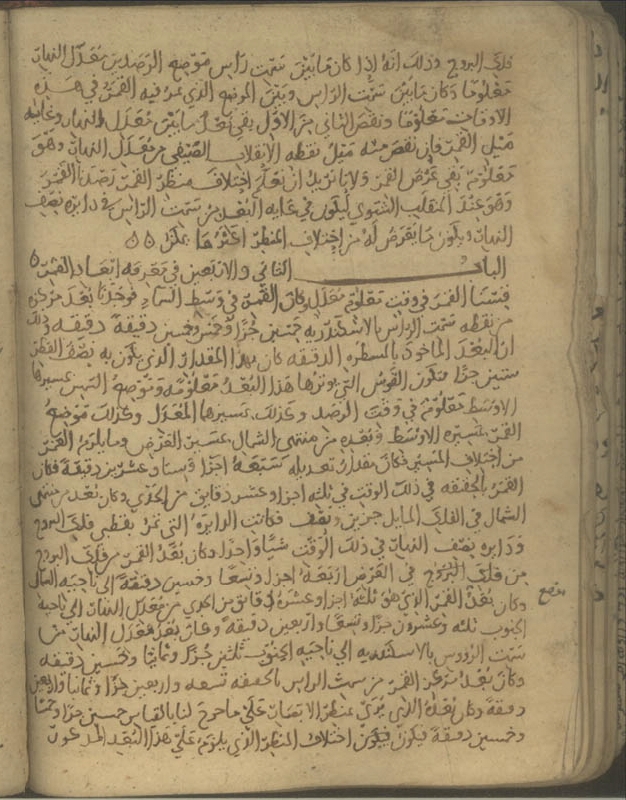 فلك البروج وذلك انه اذا كان ما بين سمت راس موضع الرصد من معدل النهار
معلوما وكان ما بين سمت الراس وبين الموضع الذي يمر فيه القمر في هذه
الاوقات معلوما ونقص الثاني من الاول بقي بعد ما بين معدل النهار وغايه
ميل القمر فان نقص منه ميل نقطه الانقلاب الصيفي من معدل النهار وهو
معلوم بقي عرض القمر ولانا نريد ان نعلم اختلاف منظر القمر رصدنا القمر
وهو عند المنقلب الشتوي ليكون في غايه البعد من سمت الراس في دايره نصف
النهار ويكون ما يعرض له من اختلاف المنظر اكثر ما يمكن
الباب الثاني والاربعين في معرفه ابعاد القمر
قسنا القمر في وقت معلوم وكان القمر في وسط السماء فوجدنا بعد مركزه
من نقطه سمت الراس بالاسكندريه خمسين جزا وخمس وخمسين دقيقة وذلك
ان البعد الماخوذ بالمسطره الدقيقه كان بهذا المقدار الذي يكون به نصف القطر
ستين جزا فتكون القوس التي يوترها هذا البعد معلومة وموضع الشمس بمسيرها
الاوسط معلوم في وقت الرصد وكذلك بمسيرها المعدل وكذلك موضع
القمر بمسيره الاوسط وبعده من منتهى الشمال بمسير العرض وما يلزم القمر
من اختلاف المسير فكان مقدار تعديله سبعة اجزا وستا وعشرين دقيقة فكان
القمر بالحقيقه في ذلك الوقت في ثلثه اجزا وعشر دقايق من الجدي وكان بعده من منتهى
الشمال في الفلك المايل جزين ونصف فكانت الدايره التي تمر بقطبي فلك البروج
ودايره نصف النهار في ذلك الوقت شيا واحدا وكان بعد القمر من فلك البروج
من فلك البروج في العرض اربعة اجزا وتسعا وخمسين دقيقة الى ناحيه الشمال
وكان بعد القمر الذي هو ثلثة اجزا وعشرة دقائق من الجدي من معدل النهار الى ناحية
الجنوب ثلثه وعشرون جزا وتسعا واربعين دقيقة وكان بعد معدل النهار من
سمت الرؤوس بالاسكندريه الى ناحيه الجنوب ثلثين جزا وثمانيا وخمسين دقيقه
وكان بعد مركز القمر من سمت الراس بالحقيقه تسعه واربعين جزا وثمانيا واربعين
دقيقة وكان بعده الذي يرى بمنظر الابصار على ما خرج لنا بالقياس خمسين جزا وخمسا
وخمسين دقيقة فيكون اختلاف المنظر الذي يلزم على هذا البعد المدعو